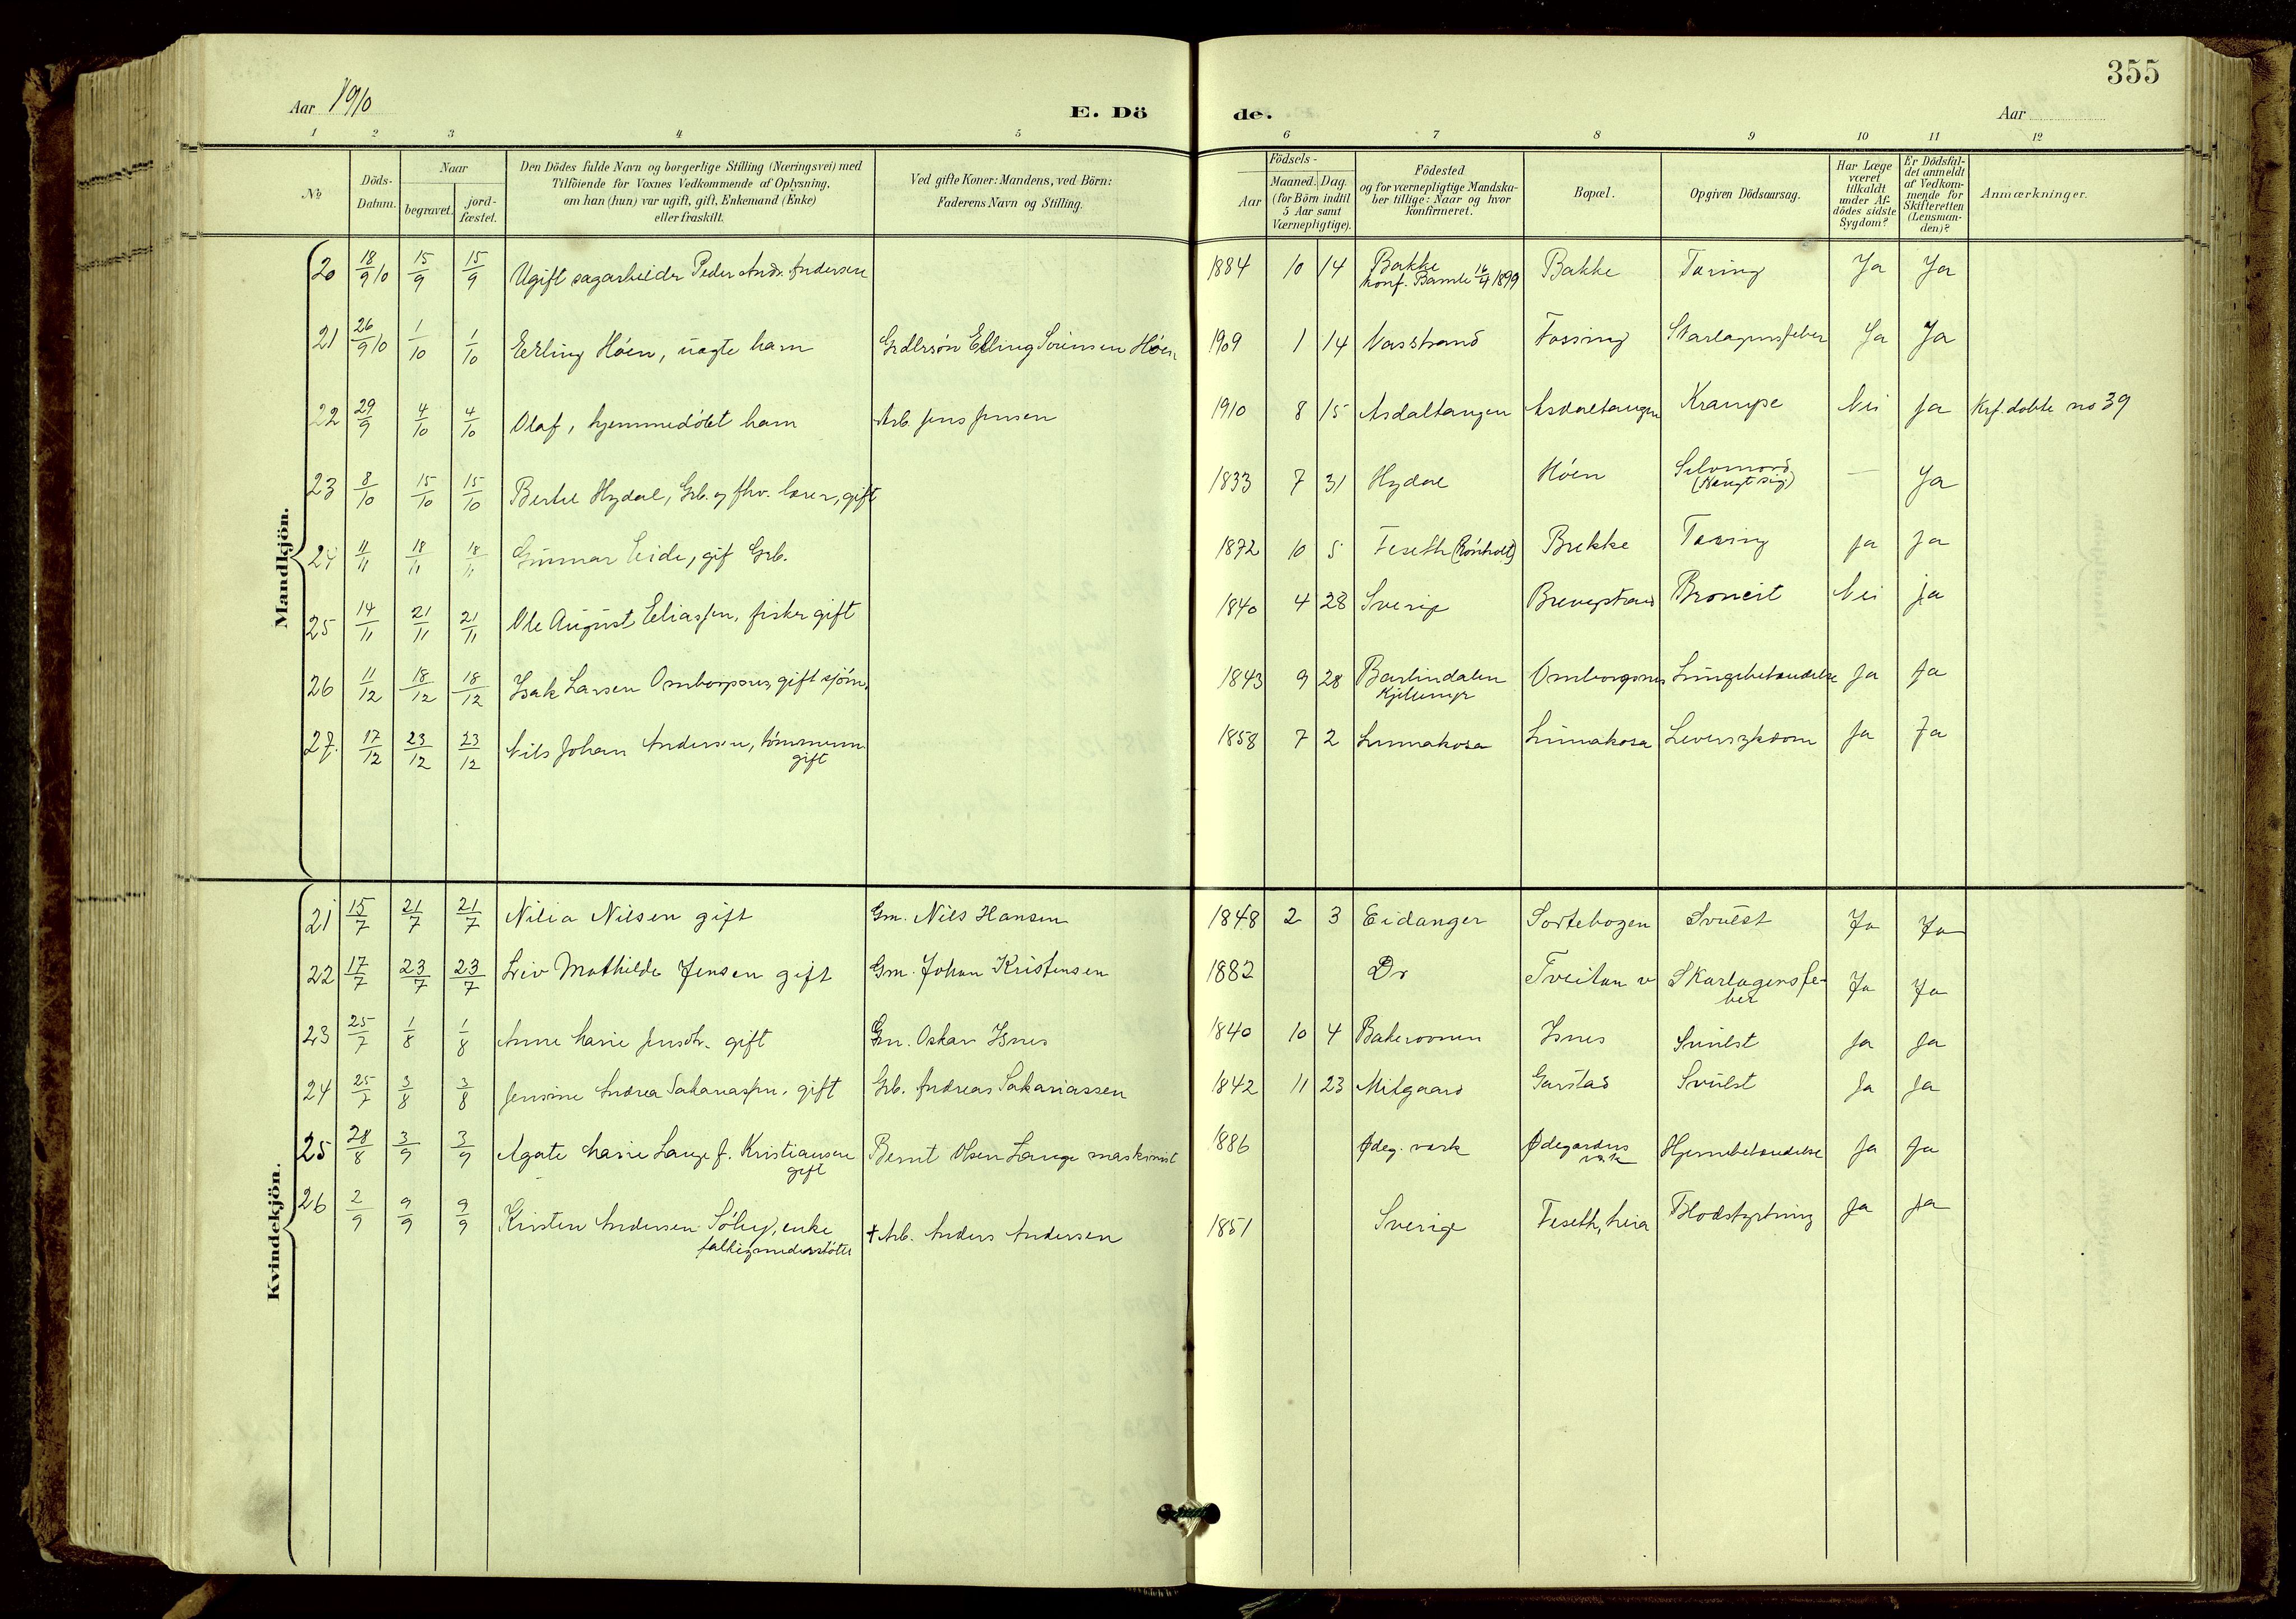 355
Aar 1910 E. Dö de. Aar
1 2 3 4 5 6 7 8 9 10 11 12
No Döds-Datum. Naar begravet. jord-fæstet. Den Dödes fulde Navn og borgerlige Stilling (Næringsvei) med Tilföiende for Voxnes Vedkommende af Oplysning, om han (hun) var ugift, gift, Enkemand (Enke) eller fraskilt. Ved gifte Koner: Mandens, ved Börn: Faderens Navn og Stilling. Födsels- Aar Maaned. Dag. (for Börn indtil 5 Aar samt Værnepligtige). Födested og for værnepligtige Mandskaber tillige: Naar og hvor konfirmeret. Bopæl. Opgiven Dödsaarsag. Har Læge været tilkaldt under Afdödes sidste Sygdom? Er Dödsfaldet anmeldt af Vedkommende for Skifteretten (Lensmanden)? Anmærkninger.
Mandkjön.
20 18/9 10 15/9 15/9 Ugift sagarbeider Peder Andr. Andersen 1884 10 14 Bakke Bakke Tæring Ja Ja
konf. Bamle 16/4 1899
21 26/9 10 1/10 1/10 Erling Höen, uægte barn Grdbrsön Elling Sörensen Höen 1909 1 14 Vasstrand Fossing Skarlagensfeber Ja Ja
22 29/9 4/10 4/10 Olaf, hjemmedöbt barn Arb. Jens Jensen 1910 8 15 Asdaltangen Asdaltangen Krampe Nei Ja Krf. döbte no 39
23 8/10 15/10 15/10 Bertel Hydal, Grb. og fhv. lærer, gift 1833 7 31 Hydal Höen Selvmord — Ja
(Hængt sig)
24 11/11 18/11 18/11 Gunnar Eide, gif Grb. 1872 10 5 Feseth (Rönholt) Brekke Tæring Ja Ja
25 14/11 21/11 21/11 Ole August Eliassen, fisker gift 1840 4 28 Sverige Brevikstrand Broncit Nei ja
26 11/12 18/12 18/12 Isak Larsen Omborsnes, gift sjöm. 1843 9 28 Barlindalen Omborsnes Lungebetændelse Ja Ja
27. 17/12 23/12 23/12 Nils Johan Andersen, tömmerm. 1858 7 2 Lunnakosa Lunnakosa Leversykdom Ja Ja
gift
Kvindekjön.
21 15/7 21/7 21/7 Nilia Nilsen gift Gm. Nils Hansen 1848 2 3 Eidanger Sortebogen Svulst Ja Ja
22 17/7 23/7 23/7 Liv Mathilde Jensen gift Gm. Johan Kristensen 1882 Dr Tveitan v Skarlagensfe-
ber Ja Ja
23 25/7 1/8 1/8 Anne Marie Jensdtr. gift Gm. Oskar Isnes 1840 10 4 Bakerovnen Isnes Svulst Ja Ja
24 25/7 3/8 3/8 Jensine Andrea Sakariassen. gift Grb. Andreas Sakariassen 1842 11 23 Mitgaard Garstad Svulst Ja Ja
25 28/8 3/9 3/9 Agate Marie Lange f. Kristiansen Bernt Olsen Lange maskinist 1886 Ødeg. verk Ødegardens Hjernebetændelse Ja Ja
gift verk
26 2/9 9/9 9/9 Kirsten Andersen Söby, enke † Arb. Anders Andersen 1851 Sverige Feseth, heia Blodstyrtning Ja Ja
fattigunderstöttet